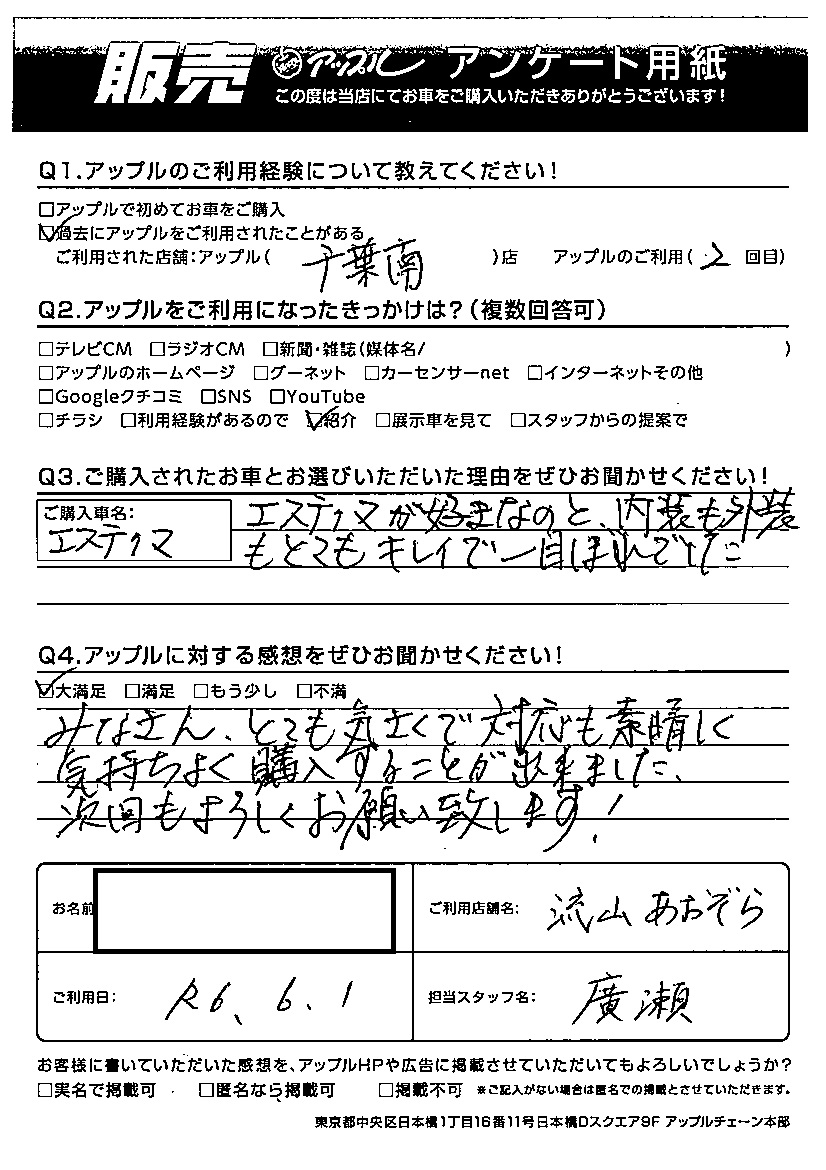 販売 アップル アンケート用紙
この度は当店にてお車をご購入いただきありがとうございます!
Q1.アップルのご利用経験について教えてください!
□アップルで初めてお車をご購入
☑過去にアップルをご利用されたことがある
ご利用された店舗:アップル( 千葉南 )店 アップルのご利用( 2 回目)
Q2.アップルをご利用になったきっかけは?(複数回答可)
□テレビCM □ラジオCM □新聞・雑誌(媒体名/ )
□アップルのホームページ □グーネット □カーセンサーnet □インターネットその他
□Googleクチコミ □SNS □YouTube
□チラシ □利用経験があるので ☑紹介 □展示車を見て □スタッフからの提案で
Q3.ご購入されたお車とお選びいただいた理由をぜひお聞かせください!
ご購入車名:
エスティマ
エスティマが好きなのと、内装も外装
もとてもキレイで一目ぼれでした
Q4.アップルに対する感想をぜひお聞かせください!
☑大満足 □満足 □もう少し □不満
みなさん、とても気さくで対応も素晴しく
気持ちよく購入することが出来ました、
次回もよろしくお願い致します!
お名前
ご利用店舗名: 流山あおぞら
ご利用日: R6、6、1
担当スタッフ名: 廣瀬
お客様に書いていただいた感想を、アップルHPや広告に掲載させていただいてもよろしいでしょうか?
□実名で掲載可 □匿名なら掲載可 □掲載不可 ※ご記入がない場合は匿名での掲載とさせていただきます。
東京都中央区日本橋1丁目16番11号日本橋Dスクエア9F アップルチェーン本部